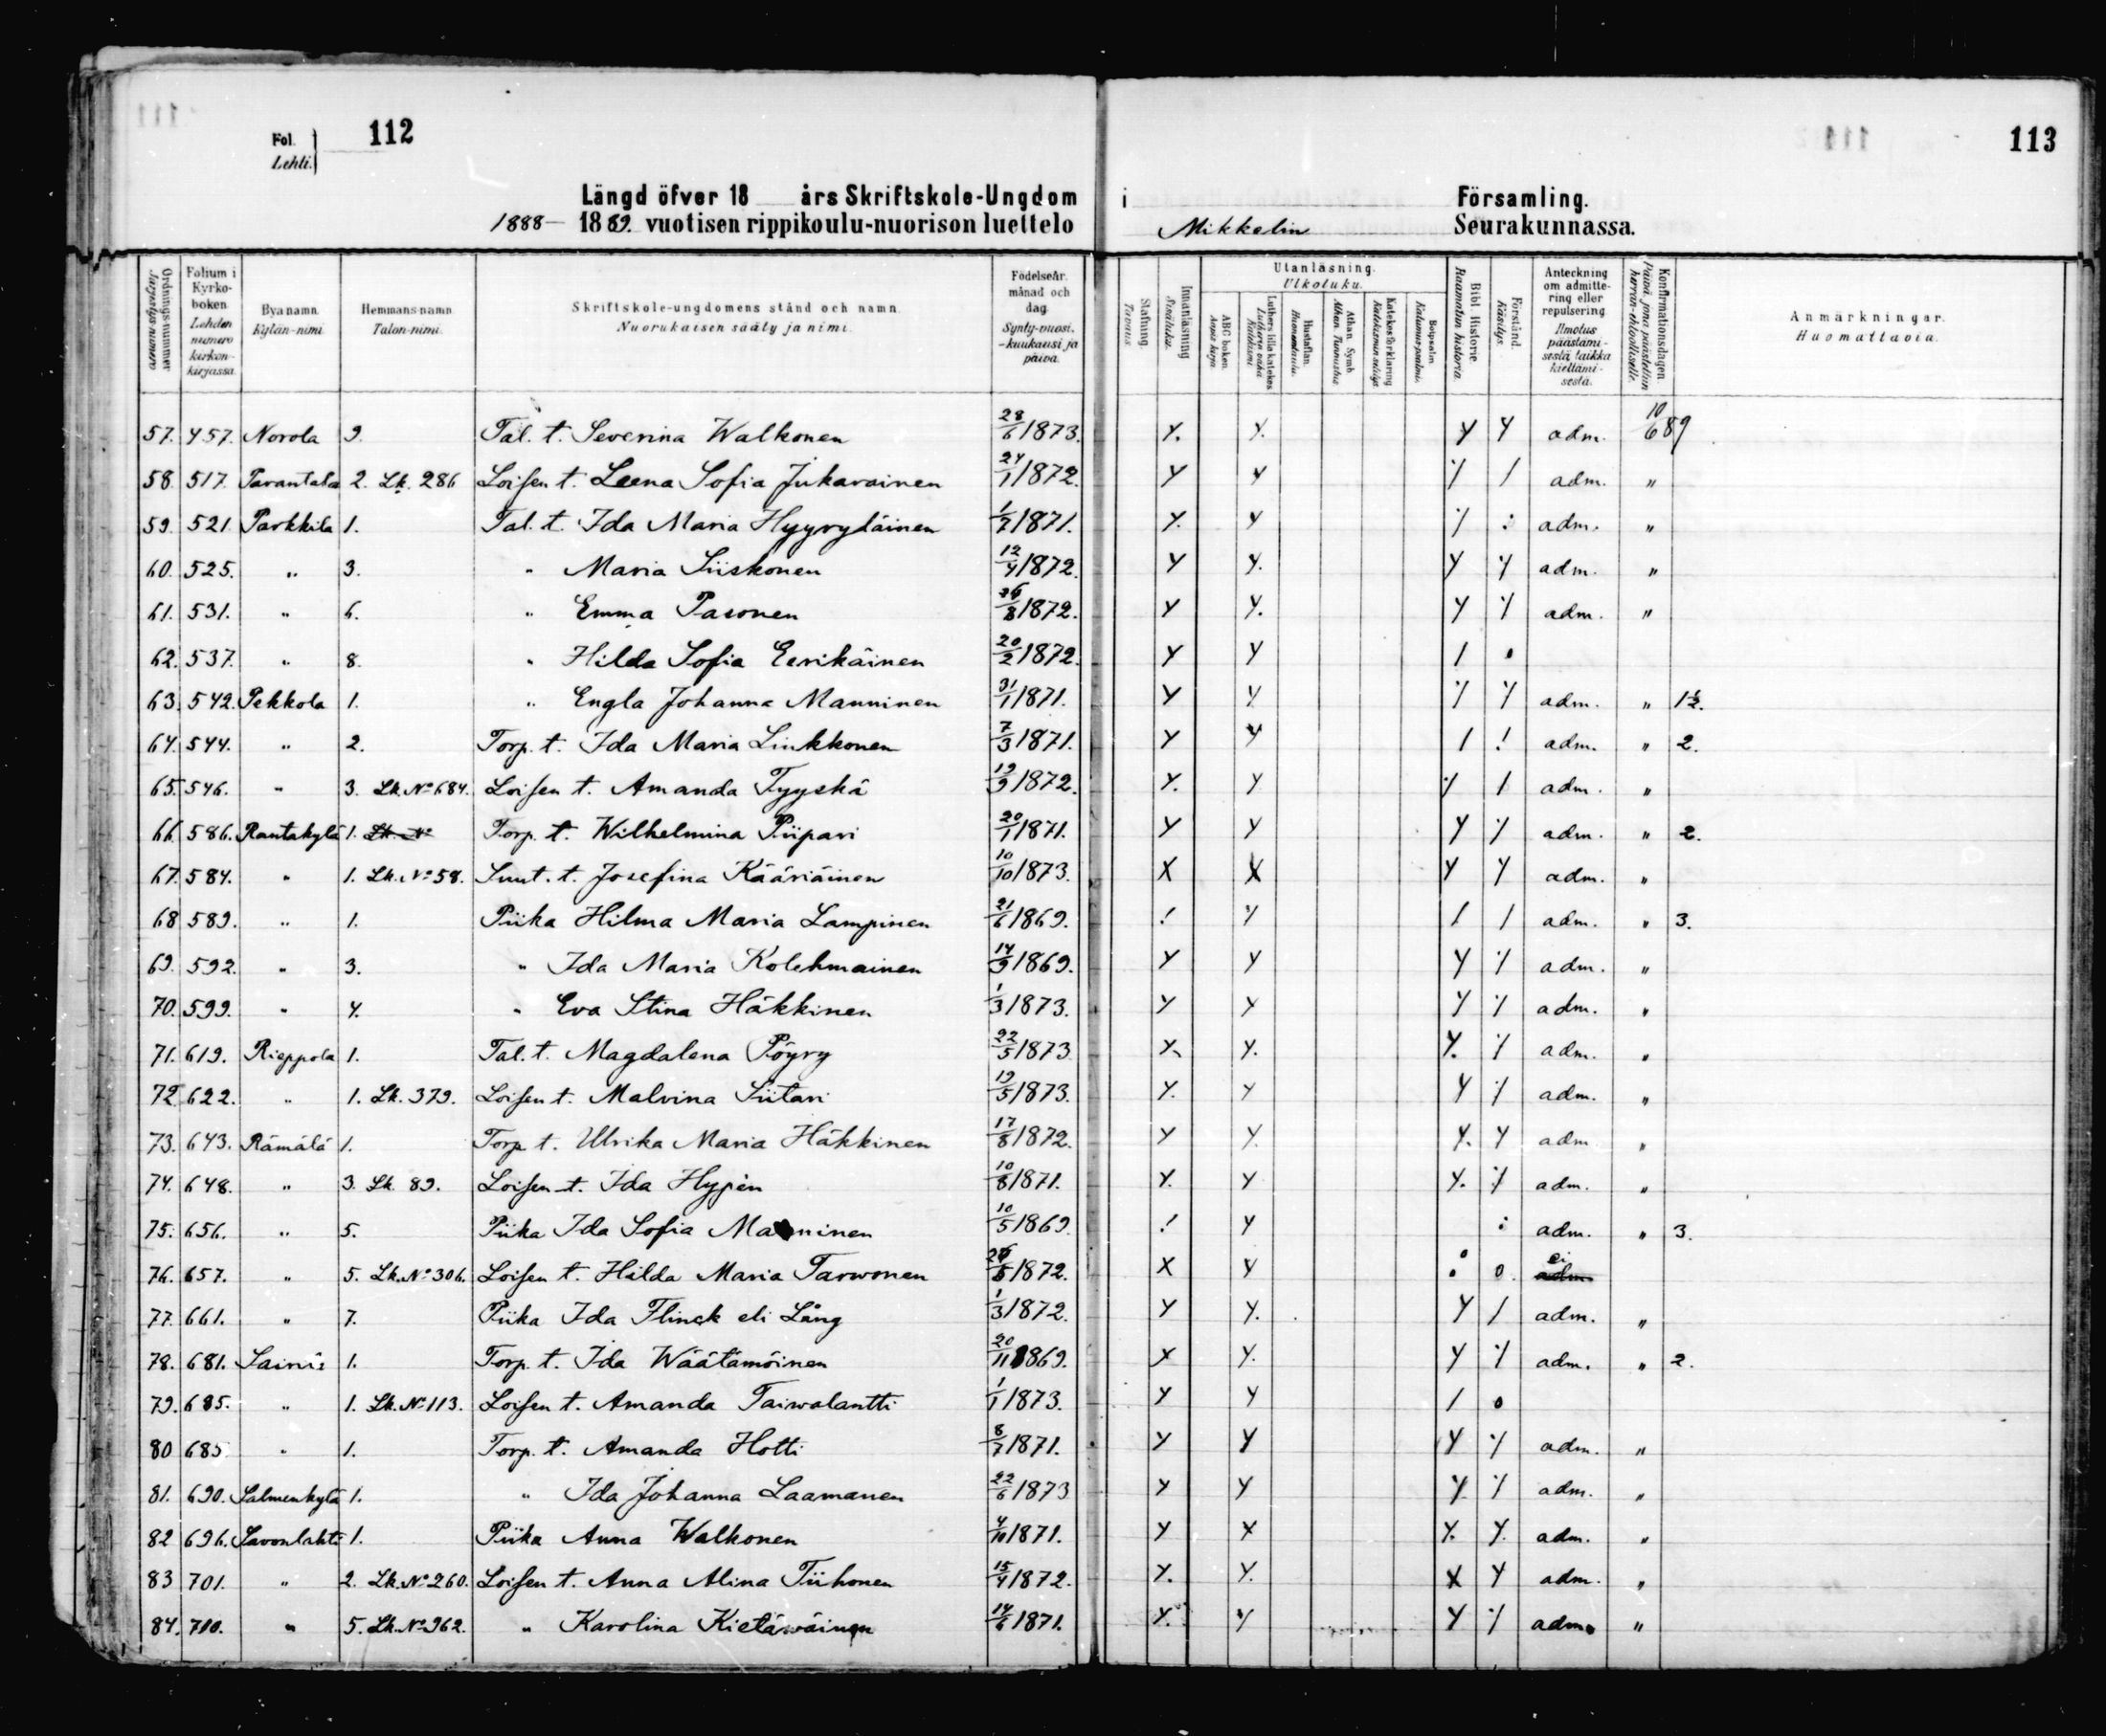 Fol. Lehti. 112
113
Längd öfver 18 års Skriftskole-Ungdom i Församling.
1888— 1889. vuotisen rippikoulu-nuorison luettelo Mikkelin Seurakunnassa.
Ordningsnummer Järjestys-numero
Folium i Kyrkoboken Lehden numero kirkonkirjassa
Byanamn. Kylän-nimi
Hemmansnamn Talon-nimi.
Skriftskole-ungdomens stånd och namn. Nuorukaisen sääty ja nimi.
Födelseår. månad och dag. Synty-vuosi. -kuukausi ja päivä.
Stafning. Tavaus.
Innanläsning Sisäluku.
Utanläsning. Ulkoluku.
ABC boken. Aapis kirja.
Luthers lilla katekes Lutherin vähä Katekismi
Hustaflan. Huoneentaulu.
Athan. Symb. Athan. Tunnustus.
Katekesförklaring Katekismin selitys
Botpsalm. Katumus-psalmi.
Bibl. Historie. Raamatun historia.
Förstånd. Käsitys.
Anteckning om admittering eller repulsering. Ilmotus päästämisestä taikka kieltämisestä.
Konfirmationsdagen. Päivä, jona päästettiin herran-ehtoolliselle.
Anmärkningar. Huomattavia.
57. 457. Norola 9. Tal. t. Severina Walkonen 28/6 1873. adm. 10/6 89
58. 517. Parantala 2. Lk. 286 Loisen t. Leena Sofia Jukarainen 24/1 1872. adm. "
59. 521. Parkkila 1. Tal. t. Ida Maria Hyyryläinen 1/7 1871. adm. "
60. 525. " 3. " Maria Siiskonen 12/4 1872. adm. "
61. 531. " 6. " Emma Pasonen 26/8 1872. adm. "
62. 537. " 8. " Hilda Sofia Eerikäinen 20/2 1872.
63. 542. Pekkola 1. " Engla Johanna Manninen 31/1 1871. adm. " 1½.
64. 544. " 2. Torp. t. Ida Maria Linkkonen 7/3 1871. adm. " 2.
65. 546. " 3. Lk. No 684. Loisen t. Amanda Tyyskä 19/9 1872. adm. "
66. 586. Rantakylä 1. Lk. No Torp. t. Wilhelmina Piipari 20/1 1871. adm. " 2.
67. 584. " 1. Lk. No 58. Suut. t. Josefina Kääriäinen 10/10 1873. adm. "
68 589. " 1. Piika Hilma Maria Lampinen 21/6 1869. adm. " 3.
69. 592. " 3. " Ida Maria Kolehmainen 14/9 1869. adm. "
70. 599. " 4. " Eva Stina Häkkinen 1/3 1873. adm. "
71. 619. Rieppola 1. Tal. t. Magdalena Pöyry 22/5 1873 adm. "
72 622. " 1. Lk. 379. Loisen t. Malvina Siitari 19/5 1873. adm. "
73. 643. Rämälä 1. Torp t. Ulrika Maria Häkkinen 17/8 1872. adm "
74. 648. " 3. Lk. 89. Loisen t. Ida Hypén 10/8 1871. adm. "
75. 656. " 5. Piika Ida Sofia Manninen 10/5 1869 adm. " 3.
76. 657. " 5. Lk. No 306. Loisen t. Hilda Maria Tarwonen 1872. ei adm
77. 661. " 7. Piika Ida Flinck eli Lång 1/3 1872. adm. "
78. 681. Sairis 1. Torp. t. Ida Wäätämöinen 20/11 1869. adm. " 2.
79. 685. " 1. Lk. No 113. Loisen t. Amanda Taiwalantti 1/1 1873.
80 685 " 1. Torp. t. Amanda Hotti 8/7 1871. adm. "
81. 690. Salmenkylä 1. " Ida Johanna Laamanen 22/6 1873 adm. "
82 696. Savonlahti 1. Piika Anna Walkonen 4/10 1871. adm. "
83 701. " 2. Lk. No 260. Loisen t. Anna Alina Tiihonen 15/4 1872. adm. "
84. 710. " 5. Lk. No 962. " Karolina Kietäwäinen 14/6 1871. adm. "